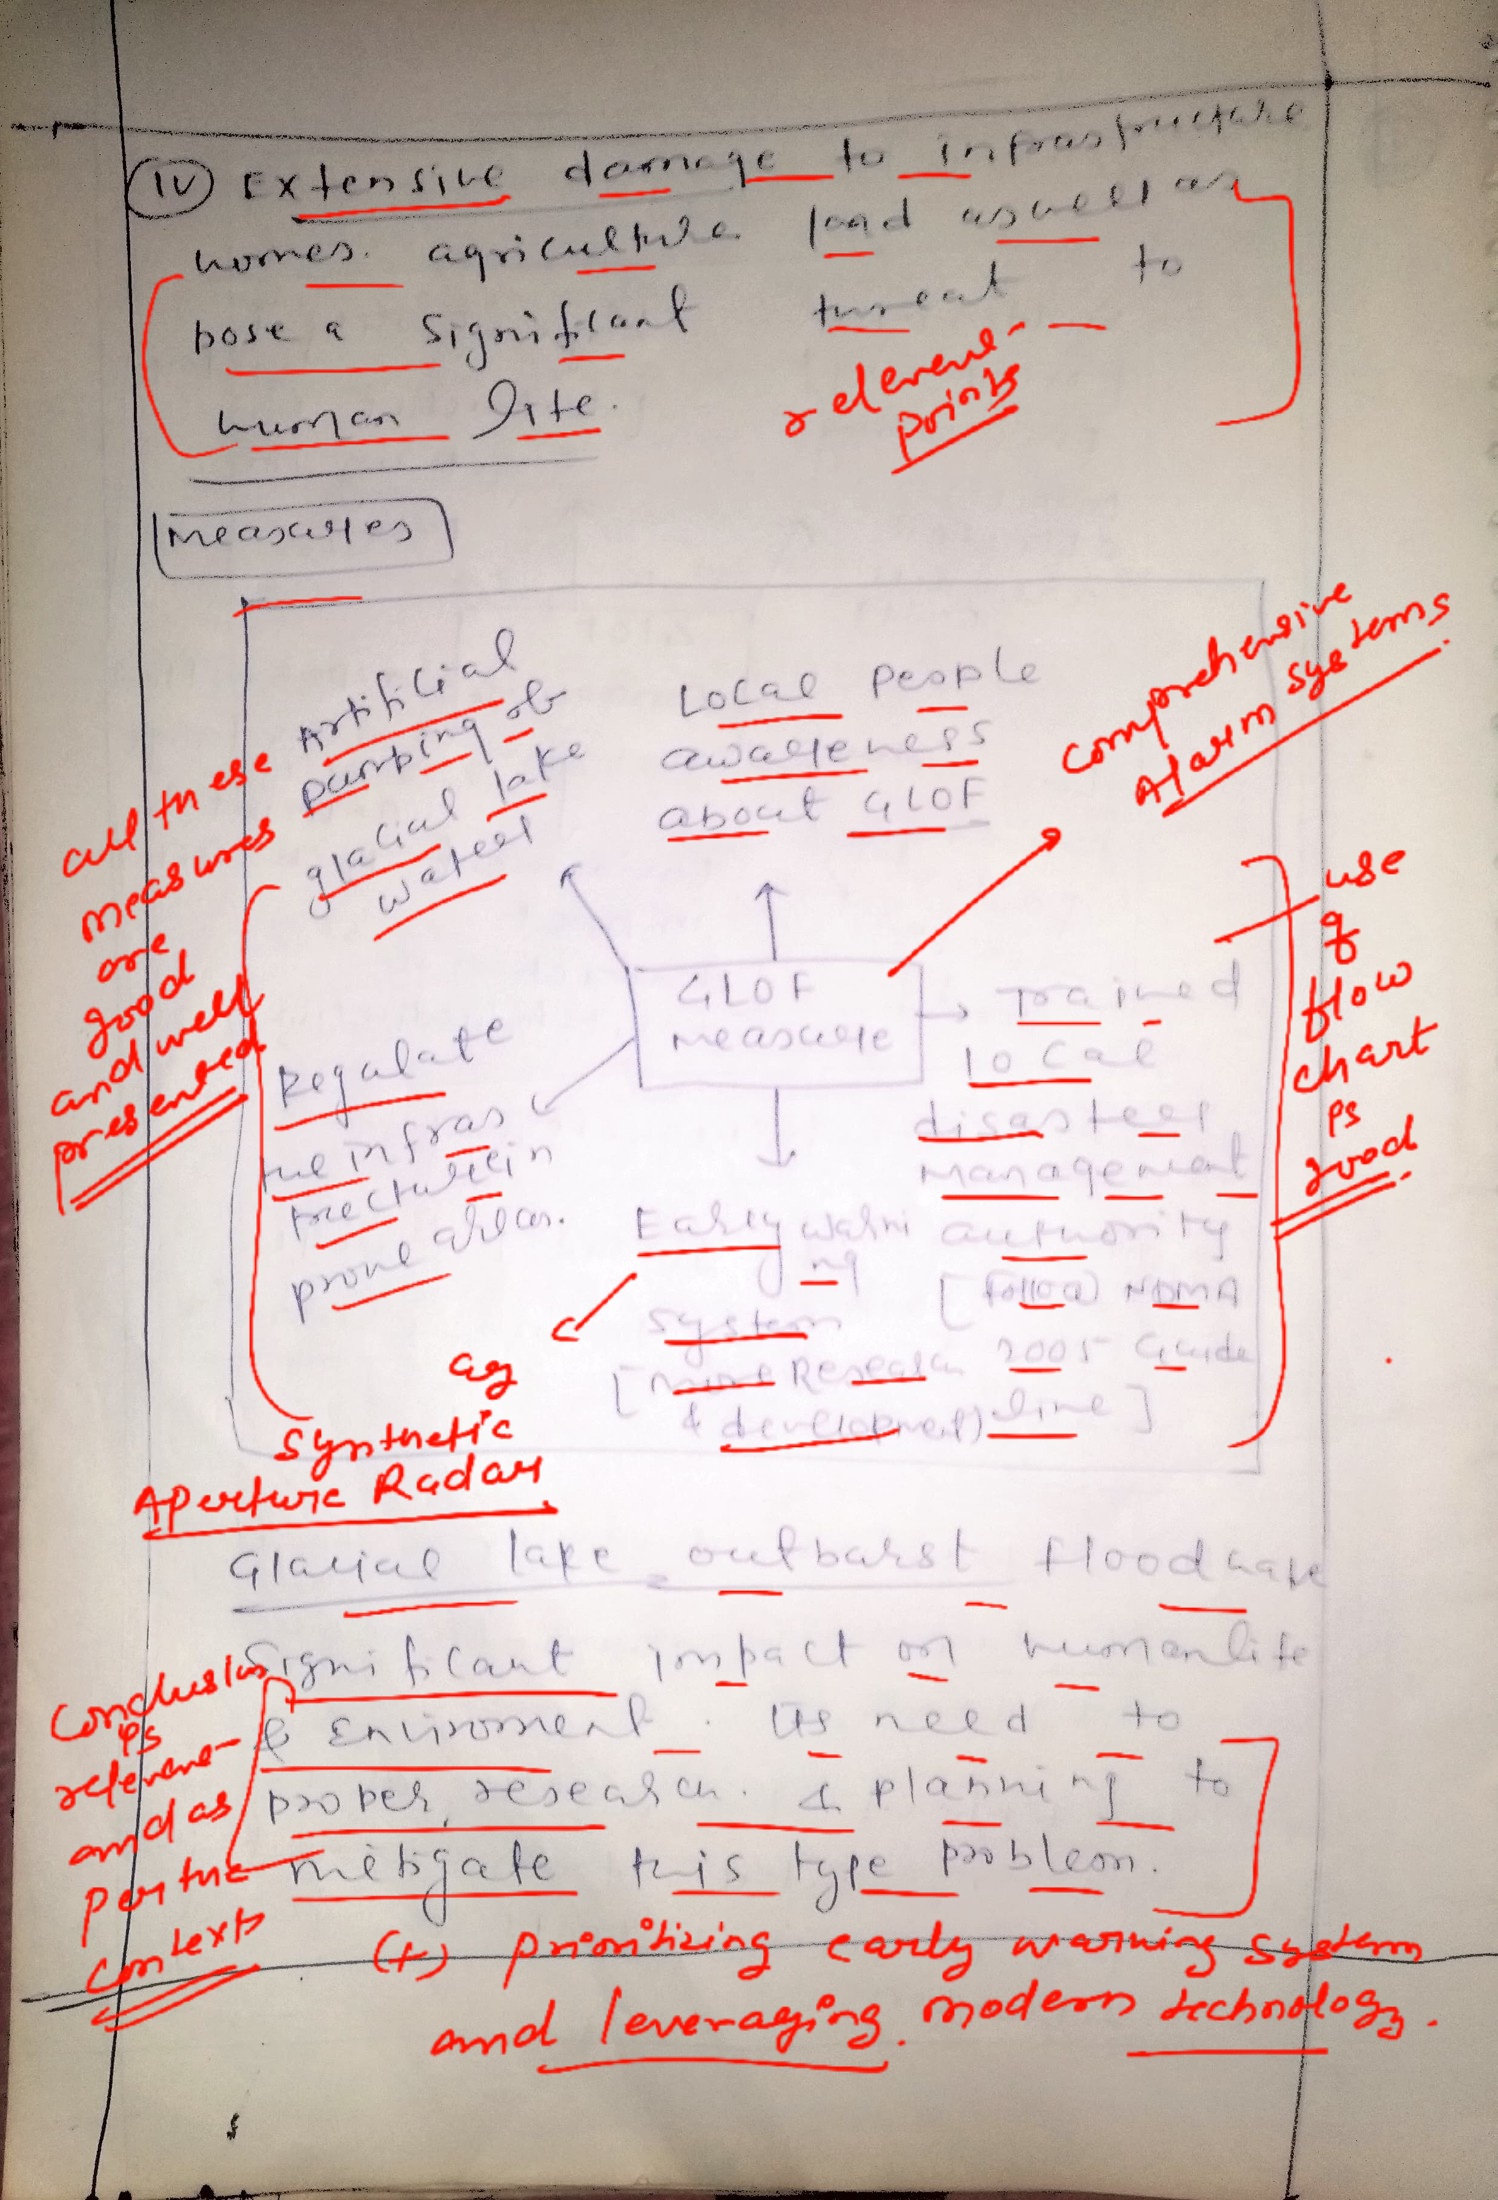 (IV) Extensive damage to infrastructure
homes. agriculture land aswell as
pose a significant threat to
human life.
relevene-
points
Measures
Artificial
pumping of
glacial lake
water
Local People
awareness
about GLOF
comprehensive
Alarm systems
all these
measures
are
good
and well
presented
GLOF
measure
use
of
flow
chart
is
good
Trained
local
disaster
management
authority
[follow NDMA
2005 Guide
line]
Regulate
the infras
tructure in
prone areas.
Early warni
ng
system
[more Research
& development)
eg
Synthetic
Aperture Radar
Glacial lake outburst flood have
significant impact on human life
& Enviroment. Us need to
proper research. & planning to
mitigate this type problem.
Conclusion
is
relevene-
and as
per the
contexts
(+) prioritizing early warning system
and leveraging modern technology.